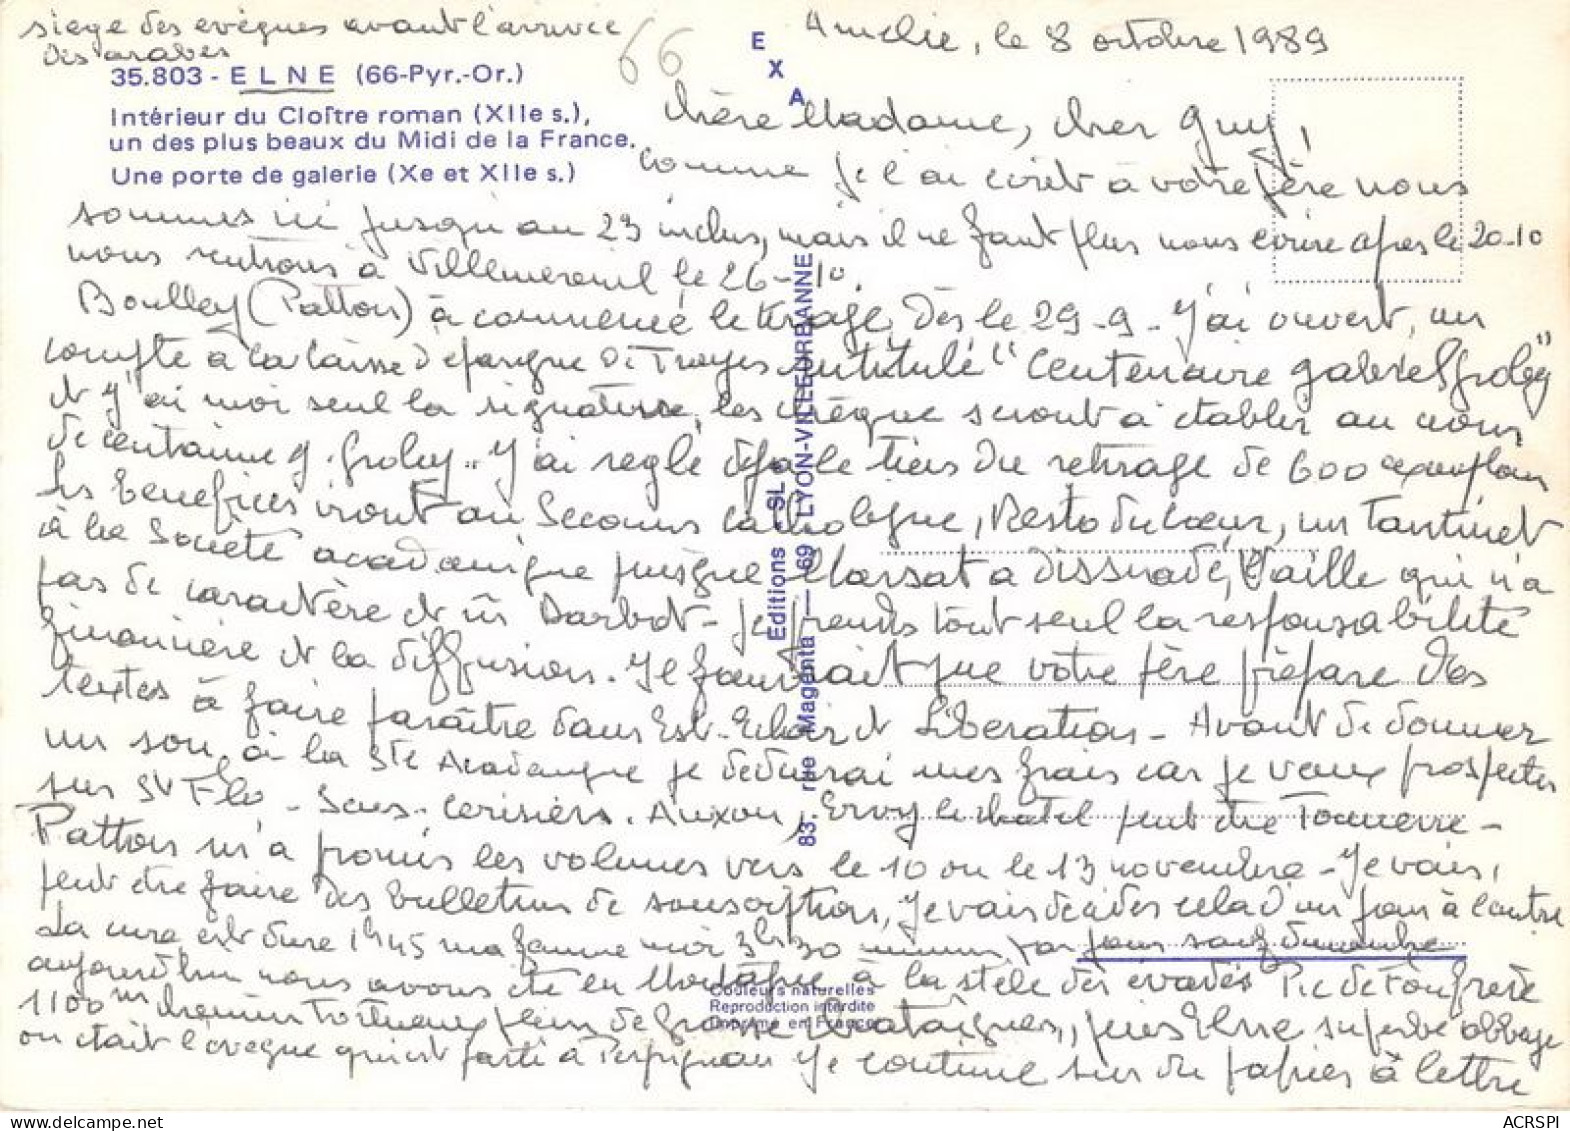 siege des evêques avant l'arrivee
des arabes
66
Amelie, le 8 octobre 1989
35.803 - ELNE (66-Pyr.-Or.)
Intérieur du Cloître roman (XIIe s.),
un des plus beaux du Midi de la France.
Une porte de galerie (Xe et XIIe s.)
EXA
Chère Madame, cher Guy,
Comme je l'ai écrit à votre père nous
sommes ici jusqu'au 23 inclus, mais il ne faut plus nous écrire après le 20-10
nous rentrons à Villemereuil le 26-10.
Boulley (Patton) à commencé le tirage, Dès le 29-9. J'ai ouvert, un
compte à la Caisse d'epargne de Troyes intitulé "Centenaire gabriel groley"
et j'ai moi seul la signature, les chèque seront à établir au nom
de centaine g. groley.. J'ai reglé déja le tiers du retirage de 600 exemplaires
les benefices iront au Secours Catholique, Resto du Coeur, un Tantinet
à la Société academique puisque Marsat a dissuadé, Vaille qui n'a
pas de caractère et Darbot - Je prends tout seul la responsabilité
financière et la diffusion. Il faudrait que votre père prépare des
textes à faire paraître dans Est-Eclair et Libération - Avant de donner
un sou, à la Sté Academique je deduirai mes frais car je veux prospecter
sur St Flo - Sous-cerisiers. Auxon, Ervy le chatel peut etre Tonnerre -
Patton m'a promis les volumes vers le 10 ou le 13 novembre - Je vais,
peut etre faire des bulletins de souscription, je vais décider cela d'un jour à l'autre
La cure est dure 1h45 ma femme moi 3h30 par jour sauf dimanche
aujourd'hui nous avons été en Montagne à la stele des évadés Pic de Fonfrède
1100m chemin tortueux plein de châtaignes, puis Elne superbe abbaye
ou était l'evêque qui est parti à Perpignan Je continue sur du papier à lettre
Editions SL
83, rue Magenta — 69 LYON-VILLEURBANNE
Couleurs naturelles
Reproduction interdite
Imprimé en France
ACRSPI